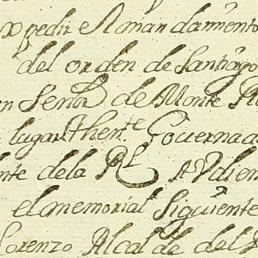 xpedir el mandamiento
del orden de Santiago
en Sena de Monte R
lugar thente Governad
nte dela Rl Audien
el memorial siguiente
Lorenzo Alcalde del